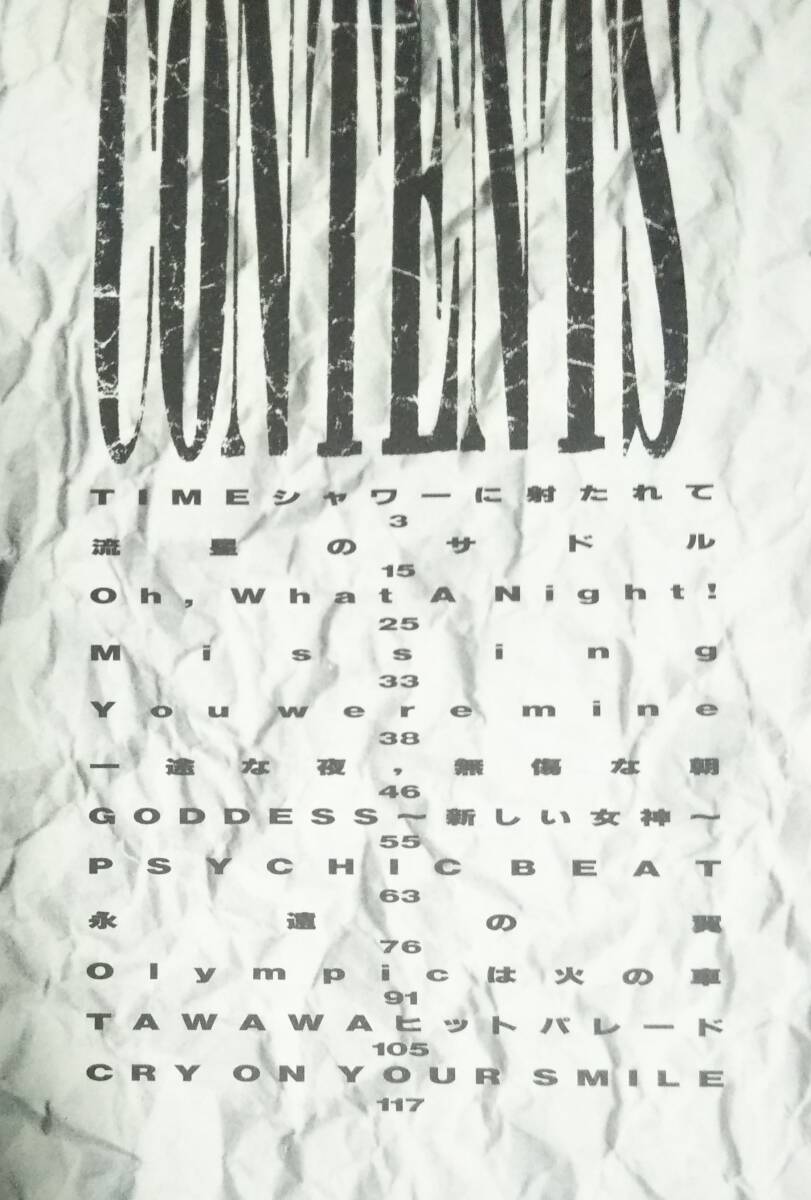 CONTENTS
TIMEシャワーに射たれて
3
流星のサドル
15
Oh, What A Night!
25
Missing
33
You were mine
38
一途な夜,無傷な朝
46
GODDESS〜新しい女神〜
55
PSYCHIC BEAT
63
永遠の翼
76
Olympicは火の車
91
TAWAWAヒットパレード
105
CRY ON YOUR SMILE
117